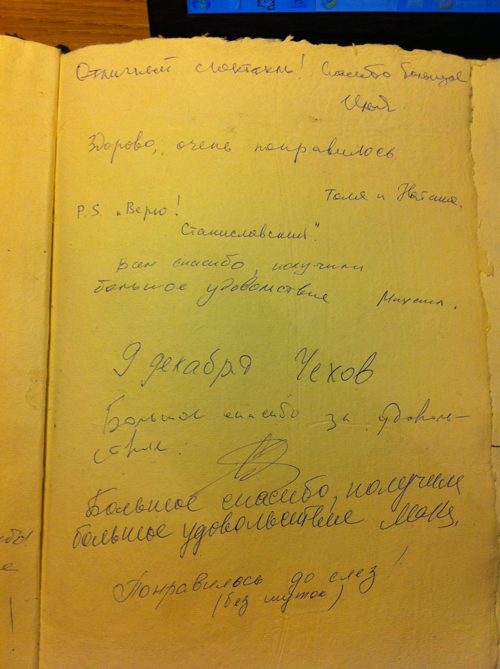 Отличный спектакль! Спасибо большое
Здорово, очень понравилось.
Толя и Наташа.
P.S. „Верю!
Станиславский".
Всем спасибо, получили
большое удовольствие Михаил.
9 декабря Чехов
Большое спасибо за удоволь-
ствие.
Большое спасибо, получили
большое удовольствие
Понравилось до слез!
(без шуток)